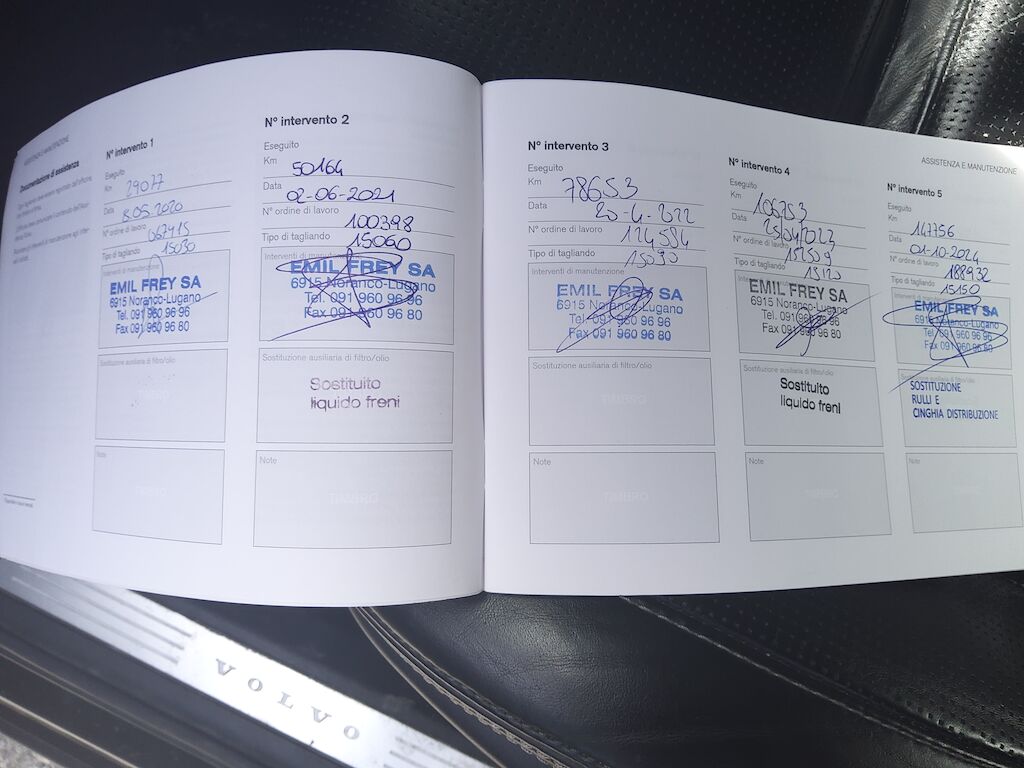 ASSISTENZA E MANUTENZIONE
Documentazione di assistenza
Nº intervento 1
Eseguito
Km 29077
Data 8.05.2020
Nº ordine di lavoro
Tipo di tagliando
15030
Interventi di manutenzione
EMIL FREY SA
6915 Noranco-Lugano
Tel. 091 960 96 96
Fax 091 960 96 80
Sostituzione ausiliaria di filtro/olio
TIMBRO
Note
Nº intervento 2
Eseguito
Km 50164
Data 02-06-2021
Nº ordine di lavoro
100398
Tipo di tagliando
15060
Interventi di manutenzione
EMIL FREY SA
6915 Noranco-Lugano
Tel. 091 960 96 96
Fax 091 960 96 80
Sostituzione ausiliaria di filtro/olio
Sostituito
liquido freni
Note
TIMBRO
Nº intervento 3
Eseguito
Km 78653
Data 20-4-2022
Nº ordine di lavoro
124534
Tipo di tagliando
15090
Interventi di manutenzione
EMIL FREY SA
6915 Noranco-Lugano
Tel. 091 960 96 96
Fax 091 960 96 80
Sostituzione ausiliaria di filtro/olio
TIMBRO
Note
TIMBRO
ASSISTENZA E MANUTENZIONE
Nº intervento 4
Eseguito
Km 106253
Data
Nº ordine di lavoro
Tipo di tagliando
15120
EMIL FREY SA
6915 Noranco-Lugano
Tel. 091 960 96 96
Fax 091 960 96 80
Sostituzione ausiliaria di filtro/olio
Sostituito
liquido freni
Note
TIMBRO
Nº intervento 5
Eseguito
Km 147756
Data 01-10-2024
Nº ordine di lavoro
188932
Tipo di tagliando
15150
EMIL FREY SA
6915 Noranco-Lugano
Tel. 091 960 96 96
Fax 091 960 96 80
Sostituzione ausiliaria di filtro/olio
SOSTITUZIONE
RULLI E
CINGHIA DISTRIBUZIONE
Note
TIMBRO
VOLVO